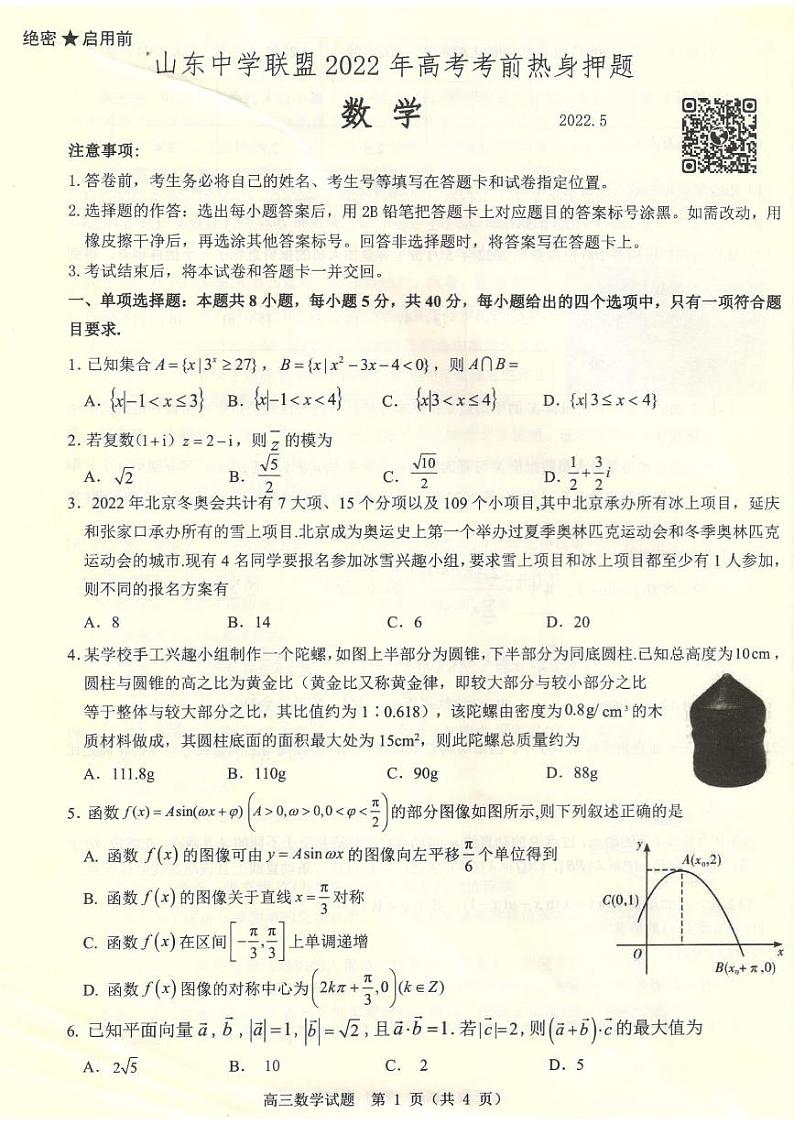 绝密★启用前
山东中学联盟 2022 年高考考前热身押题
数 学
2022.5
注意事项:
1.答卷前，考生务必将自己的姓名、考生号等填写在答题卡和试卷指定位置。
2.选择题的作答：选出每小题答案后，用 2B 铅笔把答题卡上对应题目的答案标号涂黑。如需改动，用
橡皮擦干净后，再选涂其他答案标号。回答非选择题时，将答案写在答题卡上。
3.考试结束后，将本试卷和答题卡一并交回。
一、单项选择题：本题共 8 小题，每小题 5 分，共 40 分，每小题给出的四个选项中，只有一项符合题
目要求.
1. 已知集合 A={x|3^x ≥ 27}，B={x|x²−3x−4<0}，则 A∩B=
A. {x|−1<x≤3} B. {x|−1<x<4} C. {x|3<x≤4} D. {x|3≤x<4}
2. 若复数(1+i) z=2−i，则 z̄ 的模为
A. √2 B. √5/2 C. √10/2 D. 1/2+3/2 i
3. 2022 年北京冬奥会共计有 7 大项、15 个分项以及 109 个小项目,其中北京承办所有冰上项目，延庆
和张家口承办所有的雪上项目.北京成为奥运史上第一个举办过夏季奥林匹克运动会和冬季奥林匹克
运动会的城市.现有 4 名同学要报名参加冰雪兴趣小组,要求雪上项目和冰上项目都至少有 1 人参加，
则不同的报名方案有
A. 8 B. 14 C. 6 D. 20
4. 某学校手工兴趣小组制作一个陀螺,如图上半部分为圆锥,下半部分为同底圆柱.已知总高度为10cm，
圆柱与圆锥的高之比为黄金比（黄金比又称黄金律，即较大部分与较小部分之比
等于整体与较大部分之比，其比值约为 1∶0.618），该陀螺由密度为 0.8g/cm³ 的木
质材料做成，其圆柱底面的面积最大处为 15cm²，则此陀螺总质量约为
A. 111.8g B. 110g C. 90g D. 88g
5. 函数 f(x)=Asin(ωx+φ)(A>0,ω>0,0<φ<π/2)的部分图像如图所示,则下列叙述正确的是
A. 函数 f(x) 的图像可由 y=Asinωx 的图像向左平移 π/6 个单位得到
B. 函数 f(x) 的图像关于直线 x=π/3 对称
C. 函数 f(x) 在区间[−π/3,π/3]上单调递增
D. 函数 f(x) 图像的对称中心为(2kπ+π/3,0)(k∈Z)
y
A(x₀,2)
C(0,1)
O
x
B(x₀+π,0)
6. 已知平面向量 a⃗, b⃗, |a⃗|=1, |b⃗|=√2, 且 a⃗·b⃗=1. 若|c⃗|=2,则(a⃗+b⃗)·c⃗ 的最大值为
A. 2√5 B. 10 C. 2 D. 5
高三数学试题 第 1 页（共 4 页）